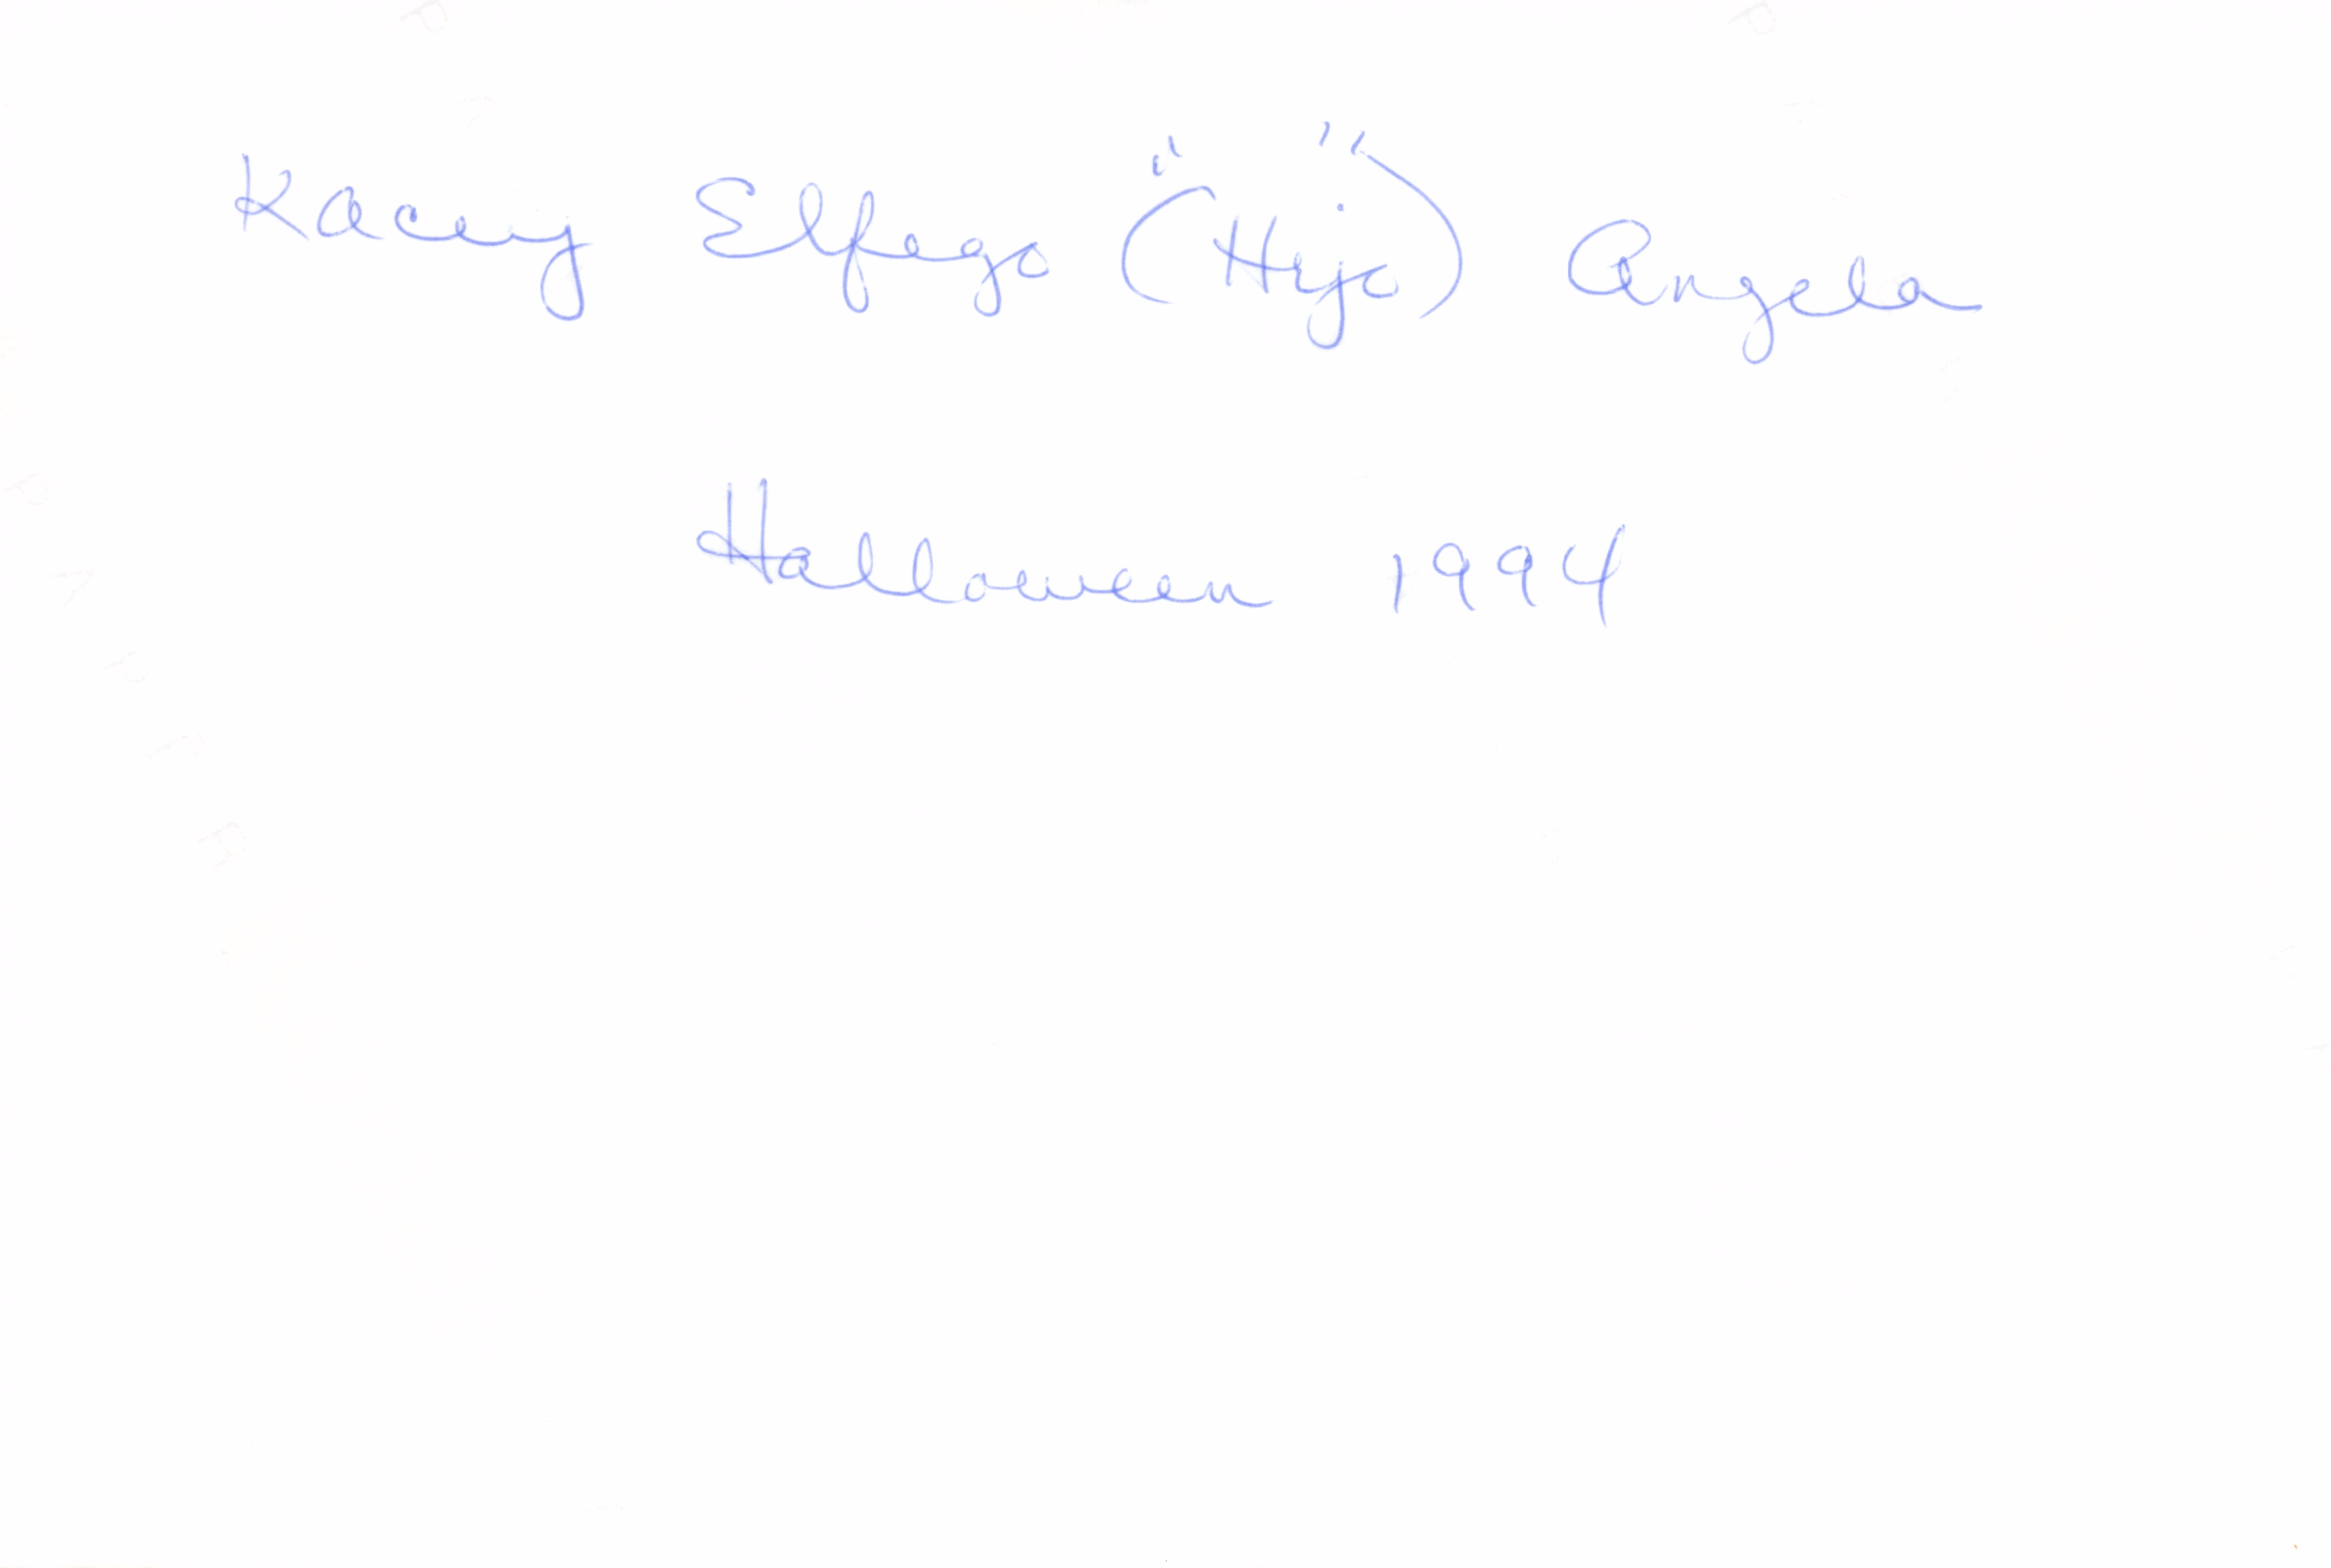 Kacey Elfego ("Hijo") Angela
Halloween 1994